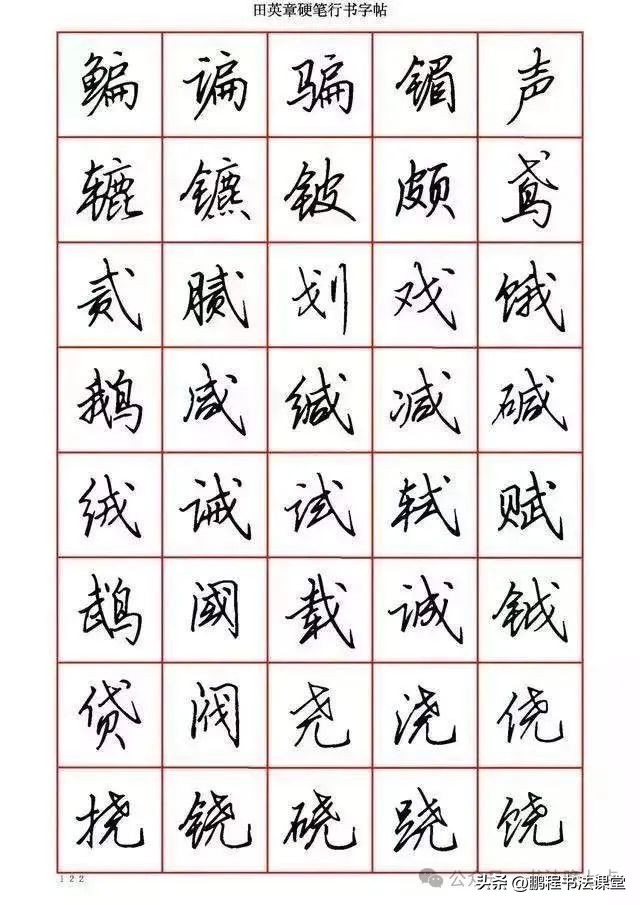 田英章硬笔行书字帖
鳊 谝 骗 镅 声
辘 镳 铍 颇 鸢
贰 腻 划 戏 饿
鹅 咸 缄 减 碱
绒 诫 试 轼 赋
鹉 阈 载 诚 钺
贷 阀 尧 浇 侥
挠 铙 硗 跷 饶
122
头条 @鹏程书法课堂